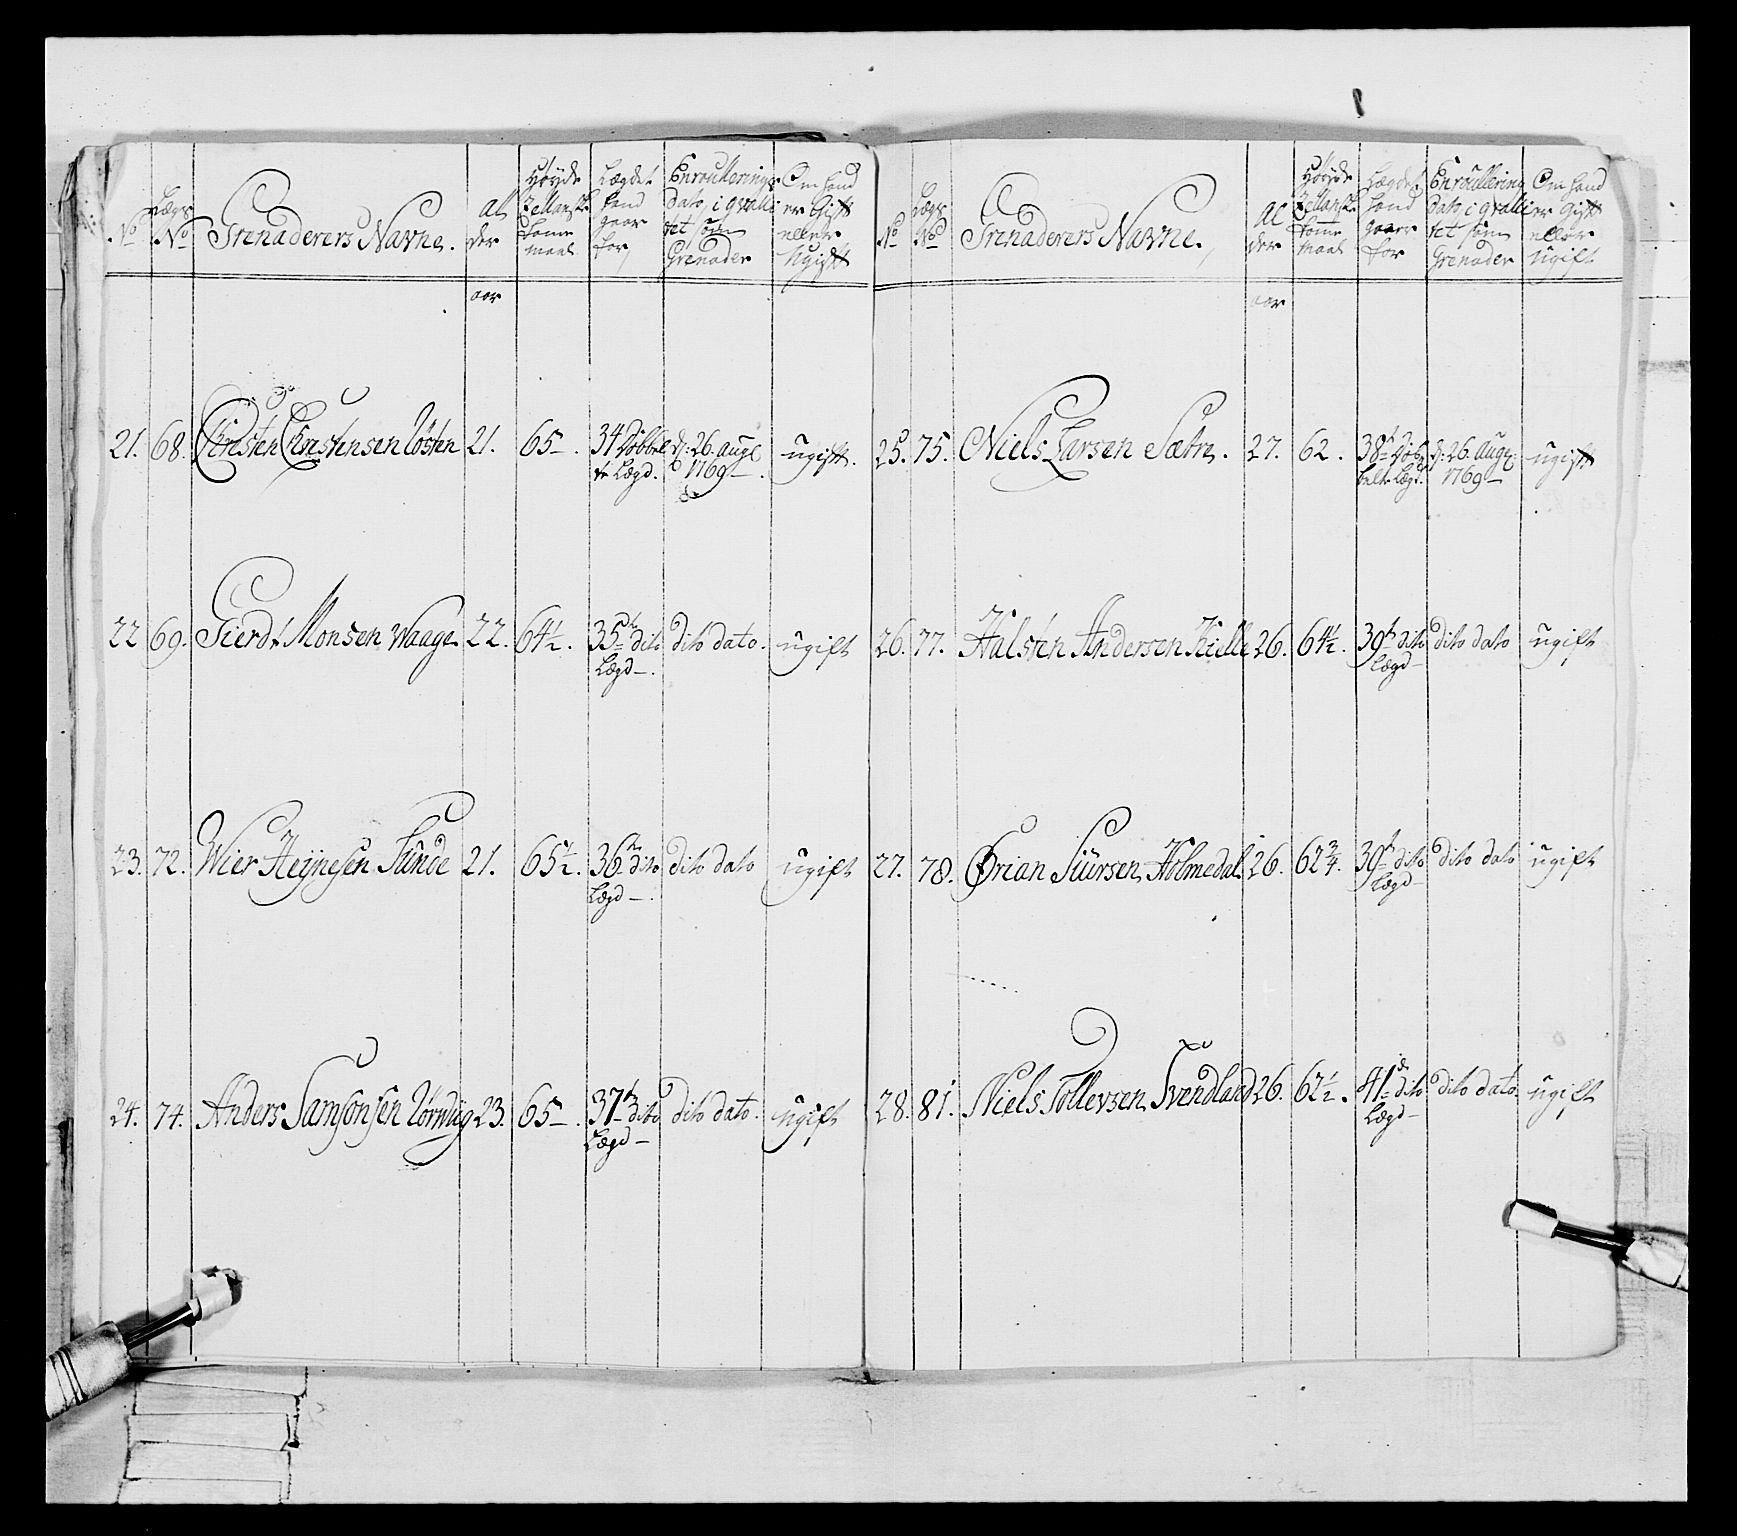 No
Lægs No
Grenaderers Navne.
Al der
Høyde Zellansk tomme maal
Lægdet hand gaar for
Enroullerings Dato, i qvalli tet som Grenader
Om hand er Gift eller Ugift
aar
21. 68. Christen Christensen Løsten 21. 65 - . 34 Dobbel te Lægd. d: 26. Aug. 1769 - . ugift.
22 69. Gierdt Monsen Waage 22. 64½. 35te dito Lægd - . dito dato. ugift
23. 72. Wier Heijnesen Sunde 21. 65½. 36te dito Lægd - . dito dato ugift
24. 74. Anders Samsonsen Lørwiig 23. 65 - . 37te dito Lægd - dito dato. ugift
No
Lægs No
Grenaderers Navne.
Al der
Høyde Zellansk tomme maal
Lægdet hand gaar for
Enroullering Dato i qvalli tet som Grenader
Om hand er Gift eller ugift
aar
25. 75. Niels Larsen Sætre. 27. 62. 38te Dob belte Lægd. d: 26. Aug. 1769 - ugift
26. 77. Halsten Andersen Kielle 26. 64½. 39te dito Lægd - dito dato ugift
27. 78. Ørian Siursen Holmedal 26. 62¾. 39te dito Lægd - dito dato ugift
28. 81. Niels Tollevsen Svendland 26. 62½. 41de dito Lægd - dito dato. ugift